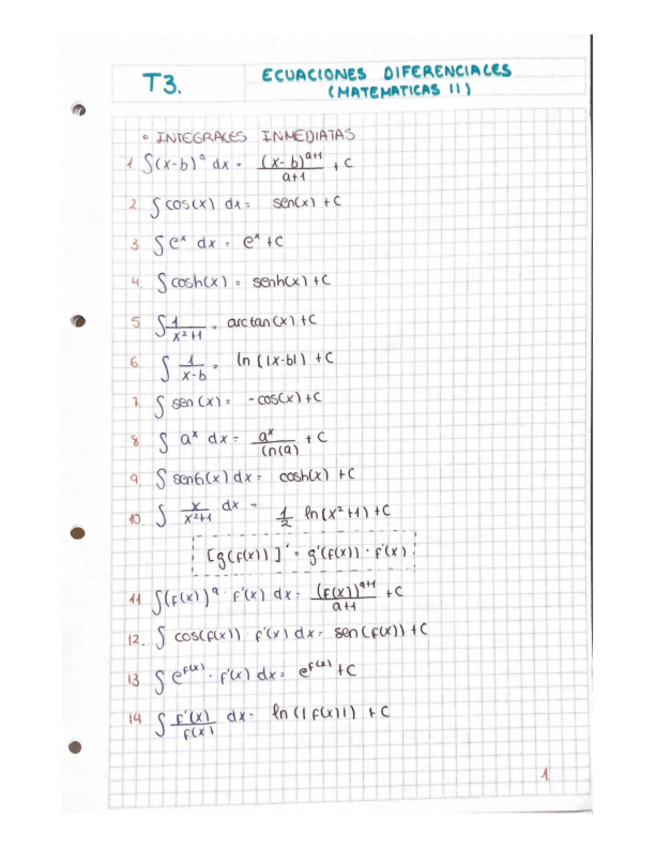 T3.
ECUACIONES DIFERENCIALES
(MATEMATICAS II)
• INTEGRALES INMEDIATAS
1 ∫(x-b)^a dx = (x-b)^(a+1)/(a+1) + C
2 ∫cos(x) dx = sen(x) + C
3 ∫e^x dx = e^x + C
4. ∫cosh(x) = senh(x) + C
5 ∫1/(x²+1) = arctan(x) + C
6. ∫1/(x-b) = ln(|x-b|) + C
7. ∫sen(x) = -cos(x) + C
8 ∫a^x dx = a^x/ln(a) + C
9. ∫senh(x) dx = cosh(x) + C
10. ∫x/(x²+1) dx = 1/2 ln(x²+1) + C
[g(f(x))]' = g'(f(x)) · f'(x)
11 ∫(f(x))^a · f'(x) dx = (f(x))^(a+1)/(a+1) + C
12. ∫cos(f(x)) f'(x) dx = sen(f(x)) + C
13 ∫e^f(x) · f'(x) dx = e^f(x) + C
14 ∫f'(x)/f(x) dx = ln(|f(x)|) + C
1